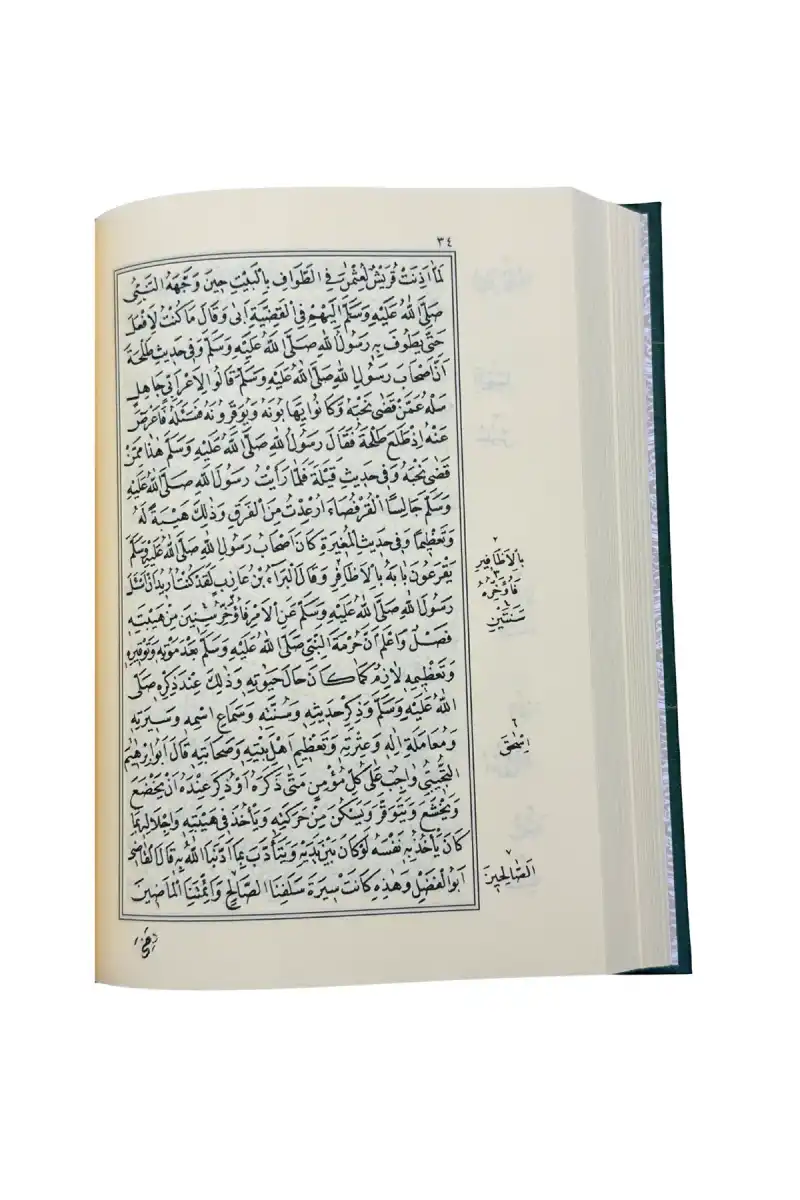 ٣٤
لَمَّا اَذِنَتْ قُرَيْشٌ لِعُثْمٰنَ فِي الطَّوَافِ بِالْبَيْتِ حِينَ وَجَّهَهُ النَّبِىُّ
صَلَّى اللهُ عَلَيْهِ وَسَلَّمَ اِلَيْهِمْ فِي الْقَضِيَّةِ اَبٰى وَقَالَ مَا كُنْتُ لِاَفْعَلَ
حَتّٰى يَطُوفَ بِهِ رَسُولُ اللهِ صَلَّى اللهُ عَلَيْهِ وَسَلَّمَ وَفِي حَدِيثِ طَلْحَةَ
اَنَّ اَصْحَابَ رَسُولِ اللهِ صَلَّى اللهُ عَلَيْهِ وَسَلَّمَ قَالُوا لِاَعْرَابِيٍّ جَاهِلٍ
سَلْهُ عَمَّنْ قَضٰى نَحْبَهُ وَكَانُوا يَهَابُونَهُ وَيُوَقِّرُونَهُ فَسَئَلَهُ فَاَعْرَضَ
عَنْهُ اِذْ طَلَعَ طَلْحَةُ فَقَالَ رَسُولُ اللهِ صَلَّى اللهُ عَلَيْهِ وَسَلَّمَ هٰذَا مِمَّنْ
قَضٰى نَحْبَهُ وَفِي حَدِيثِ قَيْلَةَ فَلَمَّا رَاَيْتُ رَسُولَ اللهِ صَلَّى اللهُ عَلَيْهِ
وَسَلَّمَ جَالِسًا الْقُرْفُصَاءَ اُرْعِدْتُ مِنَ الْفَرَقِ وَذٰلِكَ هَيْبَةً لَهُ
وَتَعْظِيمًا وَفِي حَدِيثِ الْمُغِيرَةِ كَانَ اَصْحَابُ رَسُولِ اللهِ صَلَّى اللهُ عَلَيْهِ وَسَلَّمَ
يَقْرَعُونَ بَابَهُ بِالْاَظَافِرِ وَقَالَ الْبَرَاءُ بْنُ عَازِبٍ لَقَدْ كُنْتُ اُرِيدُ اَنْ اَسْئَلَ
رَسُولَ اللهِ صَلَّى اللهُ عَلَيْهِ وَسَلَّمَ عَنِ الْاَمْرِ فَاُؤَخِّرُ سِنِينَ مِنْ هَيْبَتِهِ
فَصْلٌ وَاعْلَمْ اَنَّ حُرْمَةَ النَّبِيِّ صَلَّى اللهُ عَلَيْهِ وَسَلَّمَ بَعْدَ مَوْتِهِ وَتَوْقِيرَهُ
وَتَعْظِيمَهُ لَازِمٌ كَمَا كَانَ حَالَ حَيٰوتِهِ وَذٰلِكَ عِنْدَ ذِكْرِهِ صَلَّى
اللهُ عَلَيْهِ وَسَلَّمَ وَذِكْرِ حَدِيثِهِ وَسُنَّتِهِ وَسَمَاعِ اسْمِهِ وَسِيرَتِهِ
وَمُعَامَلَةِ اٰلِهِ وَعِتْرَتِهِ وَتَعْظِيمِ اَهْلِ بَيْتِهِ وَصَحَابَتِهِ قَالَ اَبُو اِبْرٰهِيمَ
التُّجِيبِىُّ وَاجِبٌ عَلٰى كُلِّ مُؤْمِنٍ مَتٰى ذَكَرَهُ اَوْ ذُكِرَ عِنْدَهُ اَنْ يَخْضَعَ
وَيَخْشَعَ وَيَتَوَقَّرَ وَيَسْكُنَ مِنْ حَرَكَتِهِ وَيَأْخُذَ فِي هَيْبَتِهِ وَاِجْلَالِهِ بِمَا
كَانَ يَأْخُذُ بِهِ نَفْسَهُ لَوْ كَانَ بَيْنَ يَدَيْهِ وَيَتَاَدَّبَ بِمَا اَدَّبَنَا اللهُ بِهِ قَالَ الْقَاضِى
اَبُو الْفَضْلِ وَهٰذِهِ كَانَتْ سِيرَةَ سَلَفِنَا الصَّالِحِ وَاَئِمَّتِنَا الْمَاضِينَ
٢
بِالْاَظَافِيرِ
٣
فَاُؤَخِّرُهُ
٤
سَنَتَيْنِ
٦
اِسْحٰقَ
٧
الصَّالِحِينَ